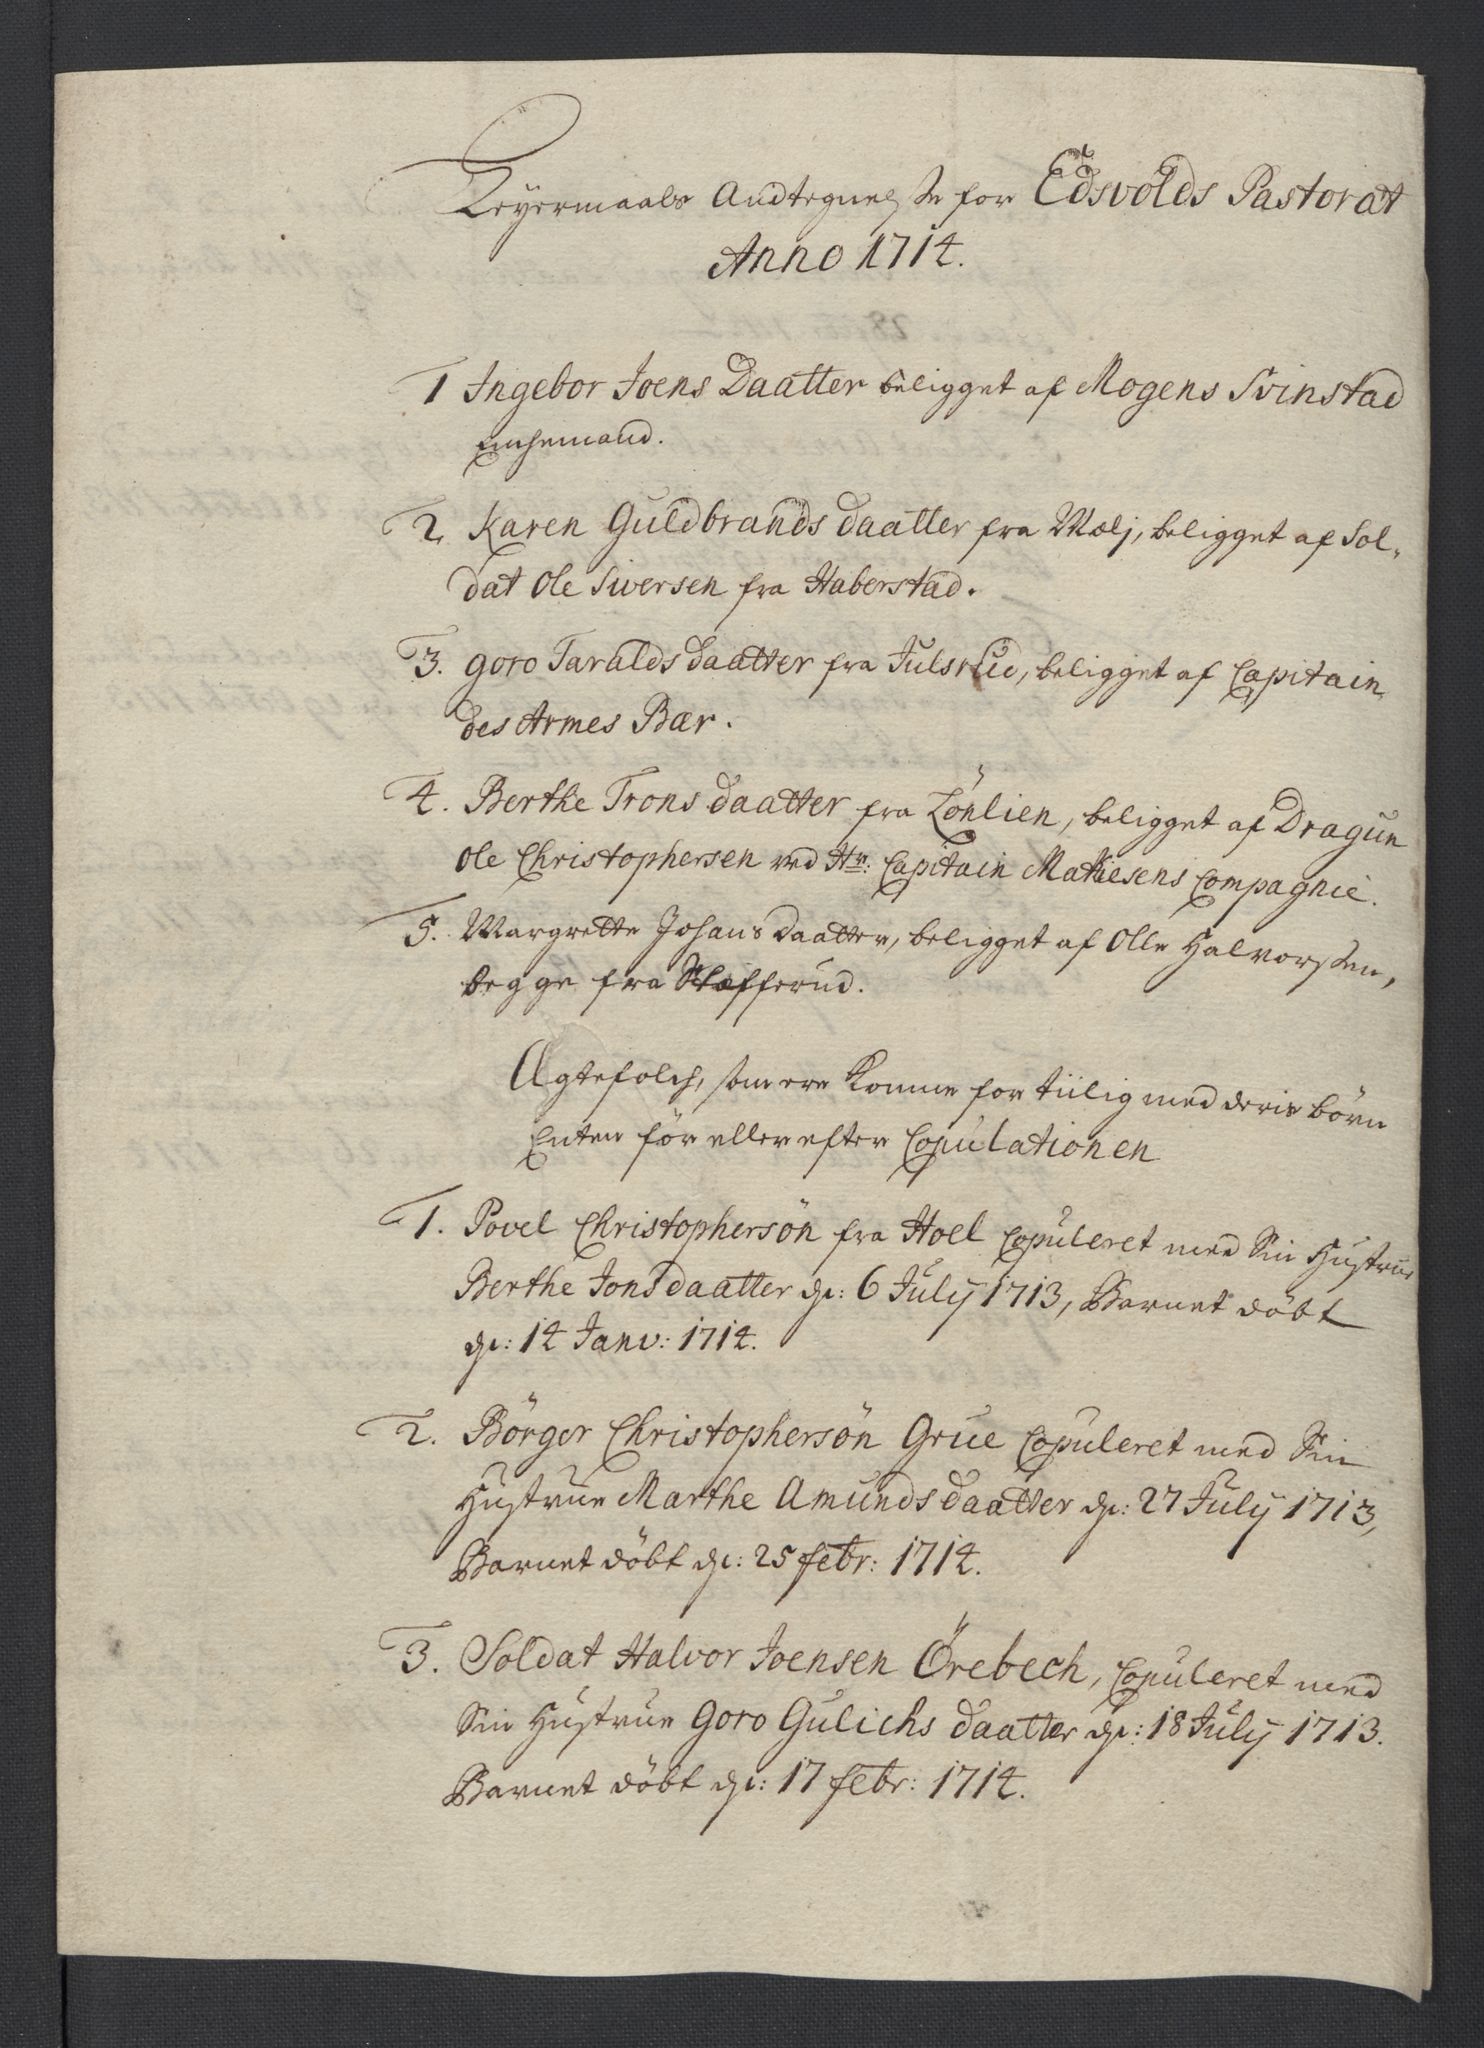 Leyermaals Andtegnelse for Edsvolds Pastorat
Anno 1714.
1 Ingebor Joens Daatter beligget af Mogens Svinstad
Enchemand.
2. Karen Guldbrands daatter fra Mælj, beligget af Sol-
dat Ole Siversen fra Haberstad.
3. Goro Taralds daatter fra Julsrud, beligget af Capitain
des Armes Bær.
4. Berthe Trons daatter fra Lönlien, beligget af Dragun
Ole Christophersen ved Hr: Capitain Mathiesens Compagnie.
5. Margrette Johans daatter, beligget af Olle Halvorsen,
begge fra Stefferud.
Ægtefolch, som ere komne for tiilig med deris börn
Enten för eller efter Copulationen
1. Povel Christophersön fra Hoel Copuleret med Sin Hustrue
Berthe Jons daatter d: 6 Julij 1713, Barnet döbt
d: 14 Janv: 1714.
2. Börger Christophersön Grue Copuleret med Sin
Hustrue Marthe Amunds daatter d: 27 Julij 1713,
Barnet döbt d: 25 febr: 1714.
3. Soldat Halvor Joensen Örebech, Copuleret med
Sin Hustrue Goro Gulichs daatter d: 18 Julij 1713.
Barnet döbt d: 17 febr: 1714.